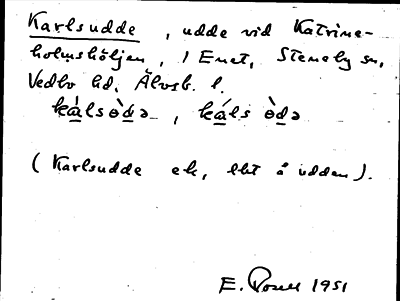 Karlsudde, udde vid Katrine-
holmshöljen, i Enet, Steneby sn,
Vedbo hd. Älvsb. l.
ká̱lsɵ̀ḏə, ká̱ls ɵ̀ḏə
(Karlsudde ek, lht å udden).
E. Rosell 1951